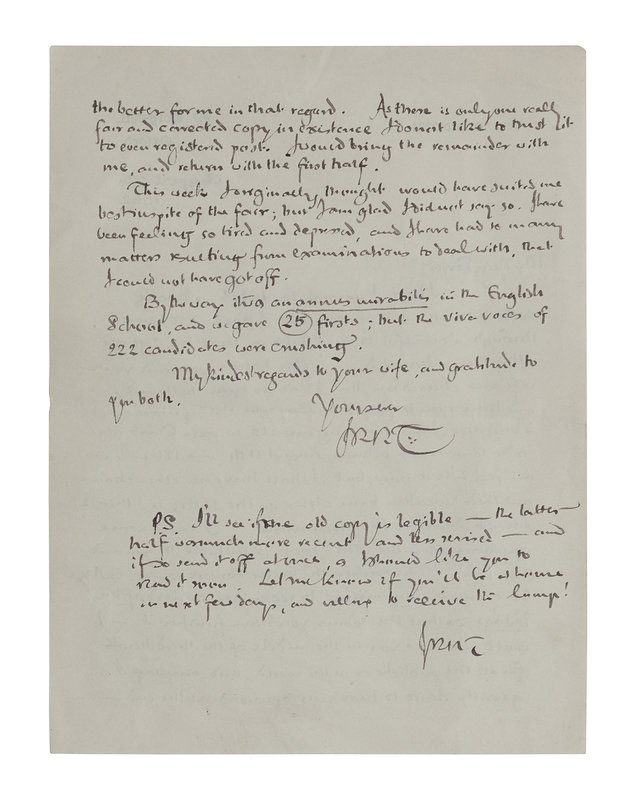 the better for me in that regard. As there is only one really
fair and corrected copy in existence I do not like to trust it
to even registered post. I would bring the remainder with
me, and return with the first half.
This week I originally thought would have suited me
best in spite of the fair; but I am glad I did not say so. I have
been feeling so tired and depressed, and I have had so many
matters resulting from examinations to deal with, that
I could not have got off.
By the way it was an annus mirabilis in the English
School, and we gave 25 firsts; but the viva voces of
222 candidates were crushing.
My kindest regards to your wife, and gratitude to
you both.
Yours ever
JRRT
PS I'll see if one old copy is legible — the latter
half was much more recent and less revised — and
if so send it off at once, as I should like you to
read it soon. Let me know if you'll be at home
in next few days, and willing to receive the lump!
JRRT